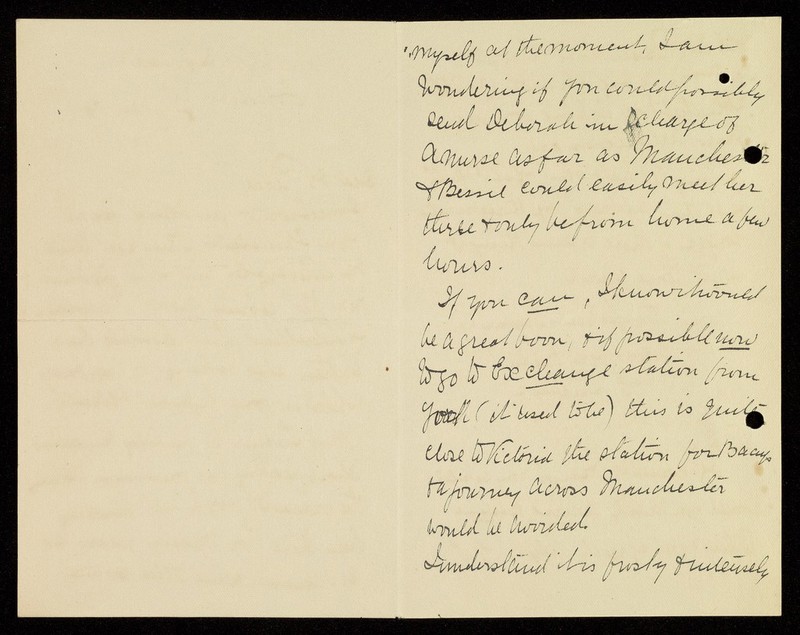 myself at the moment. I am
wondering if you could possibly
send Deborah in charge of
a nurse as far as Manchester
& Bessie could easily meet her
there & only be from home a few
hours.
If you can, I know it would
be a great boon, & if possible now
to go to Exchange station from
York (it used to be) this is quite
close to Victoria the station for Bacup
& a journey across Manchester
would be avoided.
I understand it is frosty & intensely